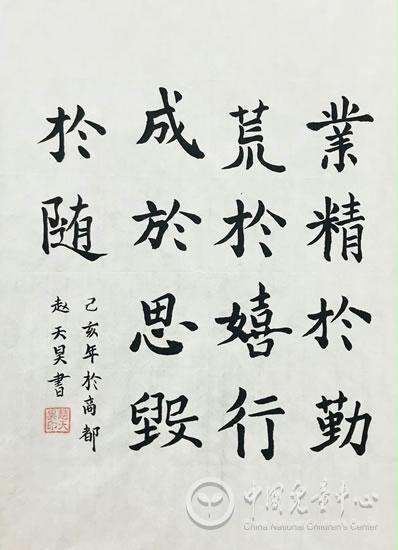 業精於勤
荒於嬉行
成於思毁
於随
己亥年於高都
赵天昊書
中国儿童中心
China National Children's Center